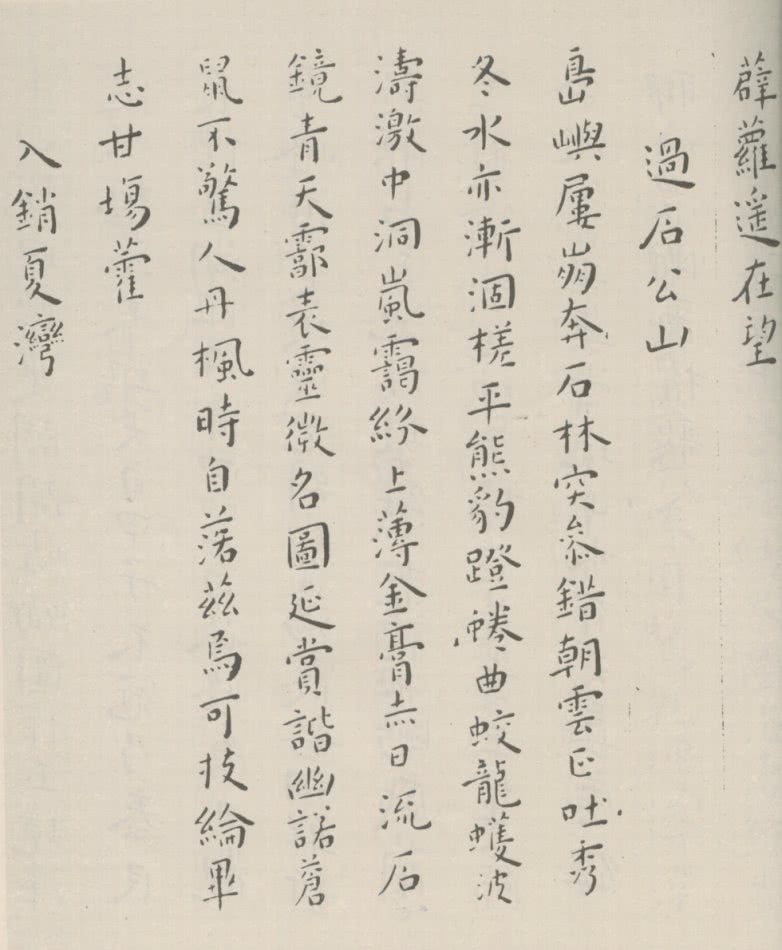 薜蘿遥在望
過石公山
島嶼屢崩奔石林突叅錯朝雲正吐秀
冬水亦漸涸槎平熊豹蹬蜷曲蛟龍蠖波
濤激中洞嵐靄紛上薄金膏赤日流石
鏡青天霩表靈徵名圖延賞諧幽諾蒼
鼠不驚人丹楓時自落茲焉可投綸畢
志甘場藿
入銷夏灣